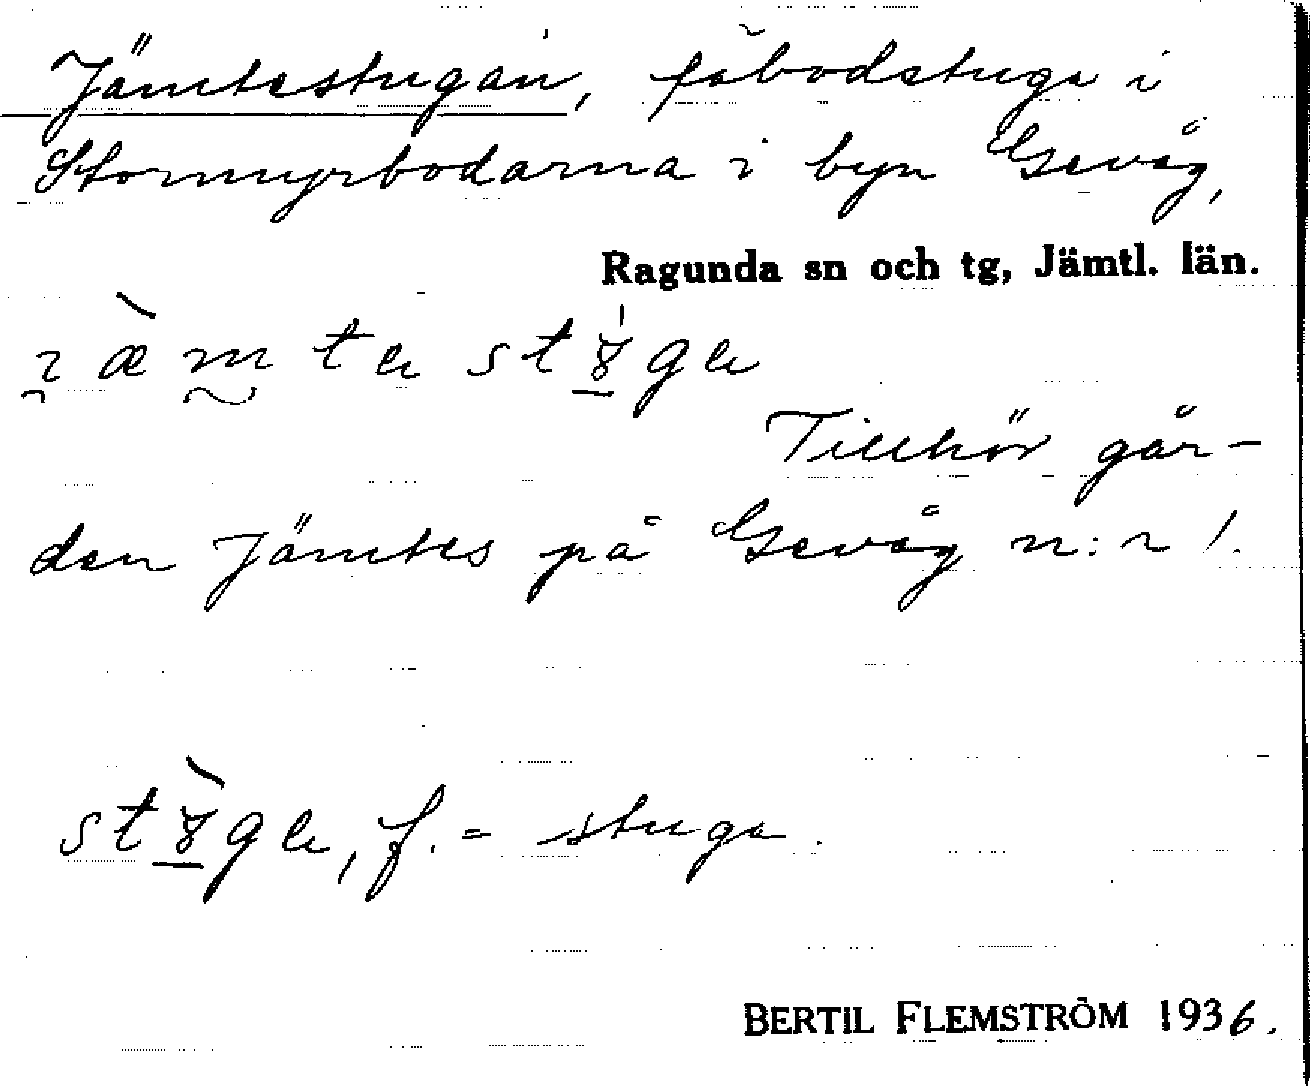 Jämtesstugan, fäbodstuga i
Stormyrbodarna i byn Gevåg,
Ragunda sn och tg, Jämtl. län.
Tillhör går-
den Jämtes på Gevåg n:r 1.
f. = stuga.
BERTIL FLEMSTRÖM 1936.